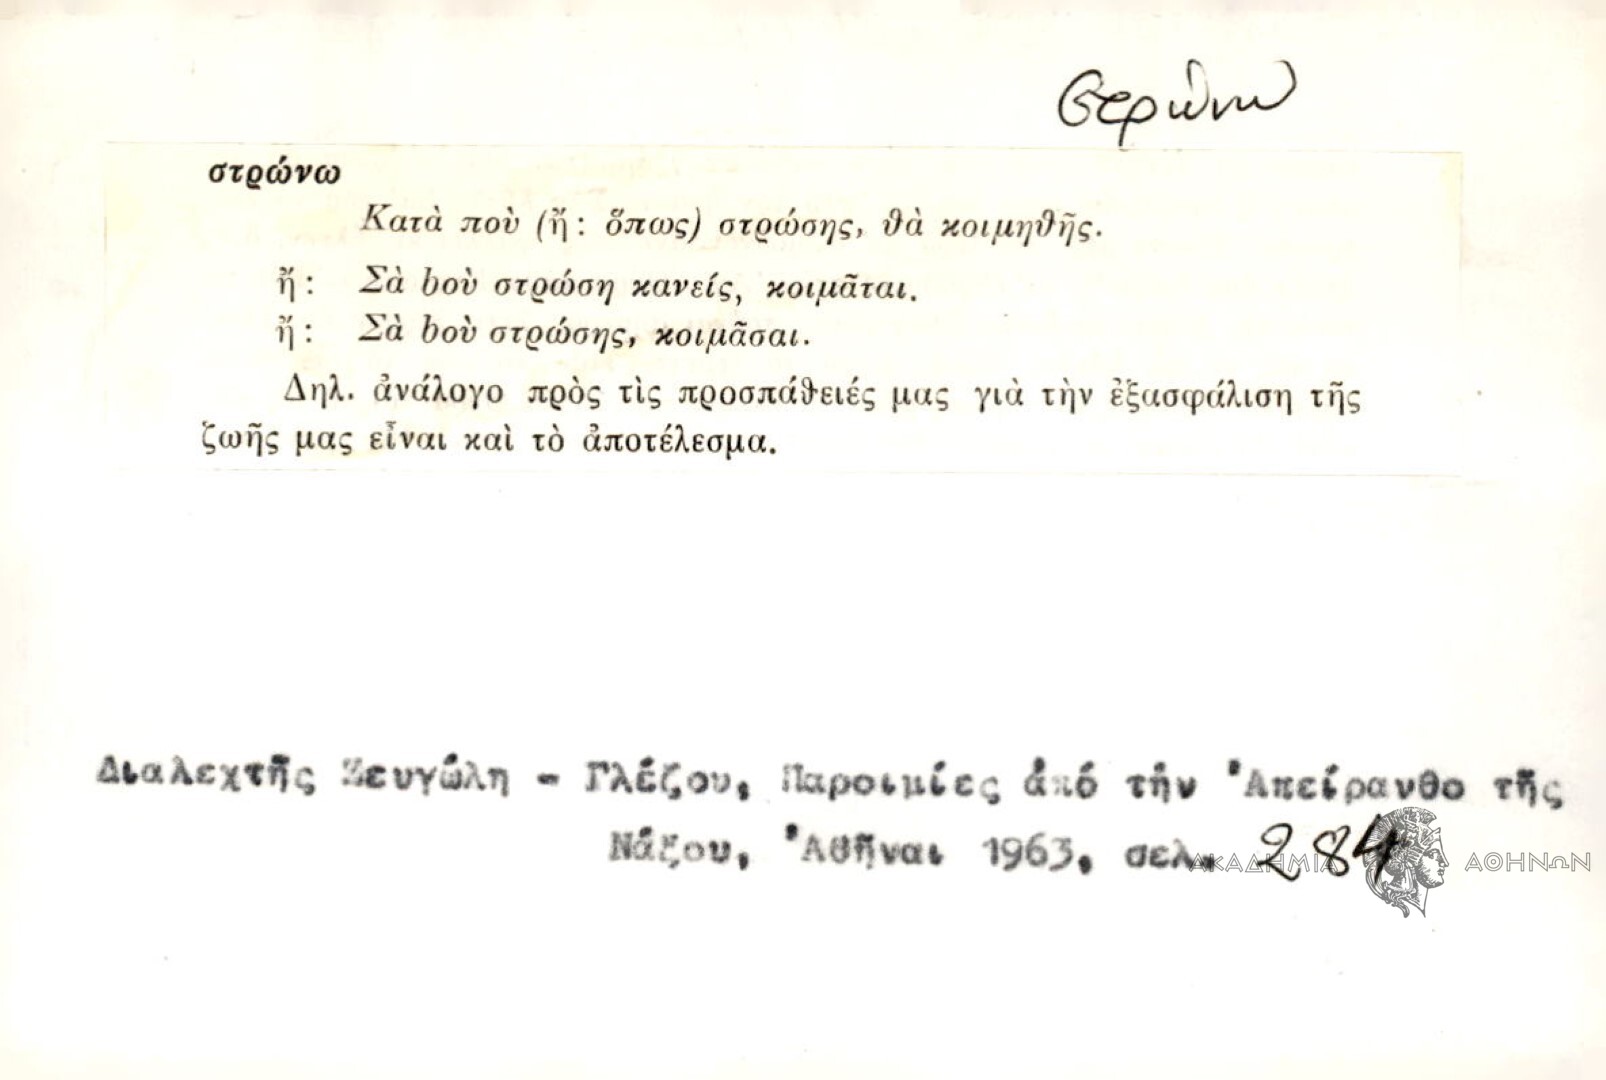 στρώνω
στρώνω
Κατὰ ποὺ (ἤ: ὅπως) στρώσης, θὰ κοιμηθῆς.
ἤ: Σὰ bοὺ στρώση κανείς, κοιμᾶται.
ἤ: Σὰ bοὺ στρώσης, κοιμᾶσαι.
Δηλ. ἀνάλογο πρὸς τὶς προσπάθειές μας γιὰ τὴν ἐξασφάλιση τῆς
ζωῆς μας εἶναι καὶ τὸ ἀποτέλεσμα.
Διαλεχτῆς Ζευγώλη - Γλέζου, Παροιμίες ἀπό τήν Ἀπείρανθο τῆς
Νάξου, Ἀθῆναι 1963, σελ. 284
ΑΚΑΔΗΜΙΑ ΑΘΗΝΩΝ